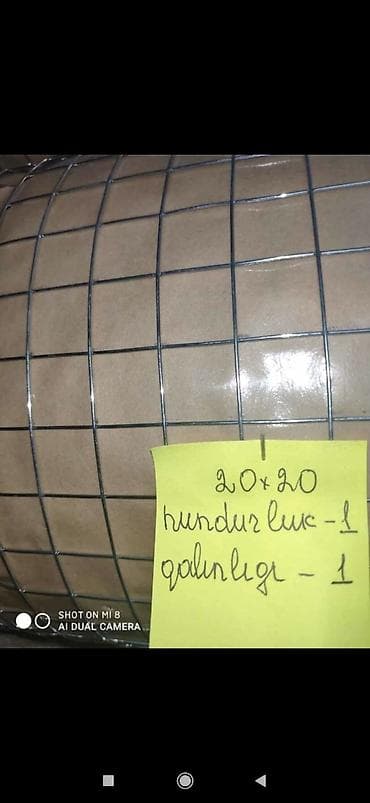 20×20
hundurluk - 1
qalınlıgı - 1
SHOT ON MI 8
AI DUAL CAMERA